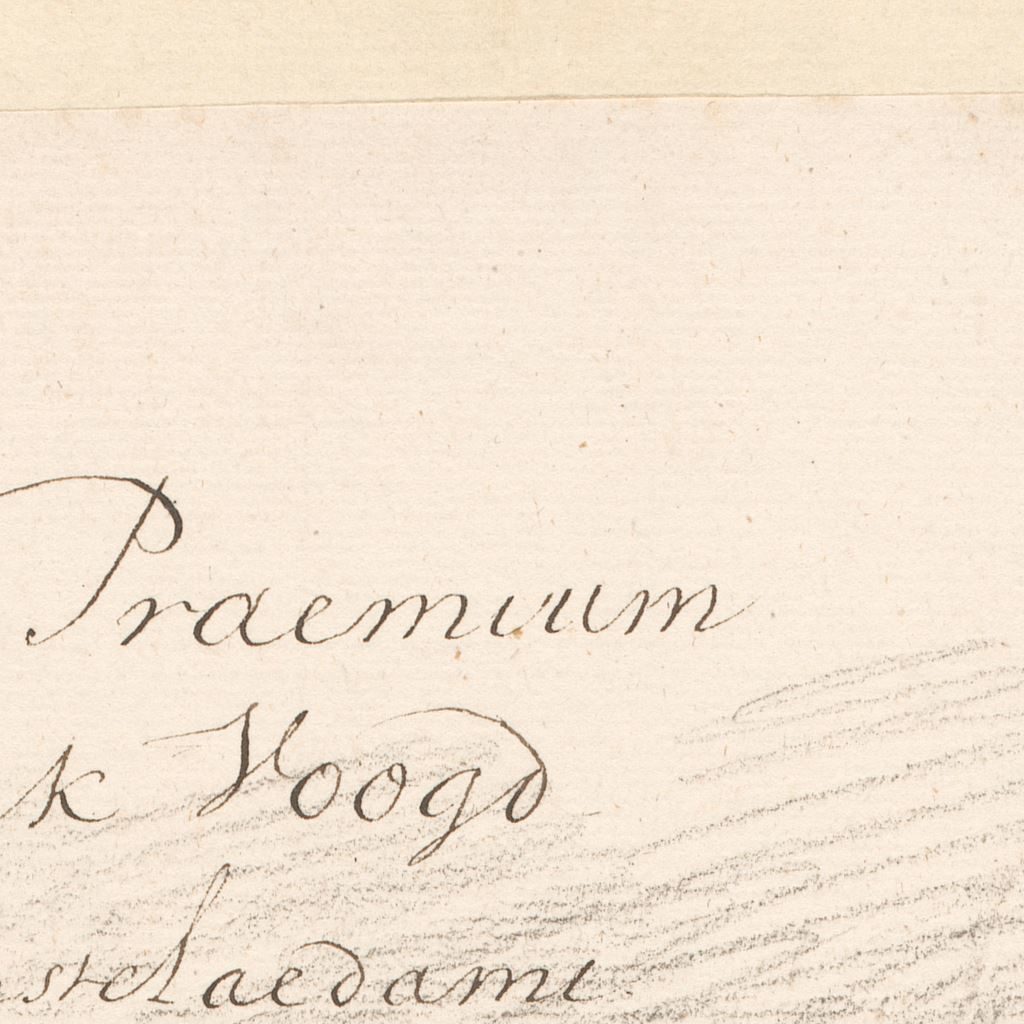 Praemium
k Voogd
stelaedami